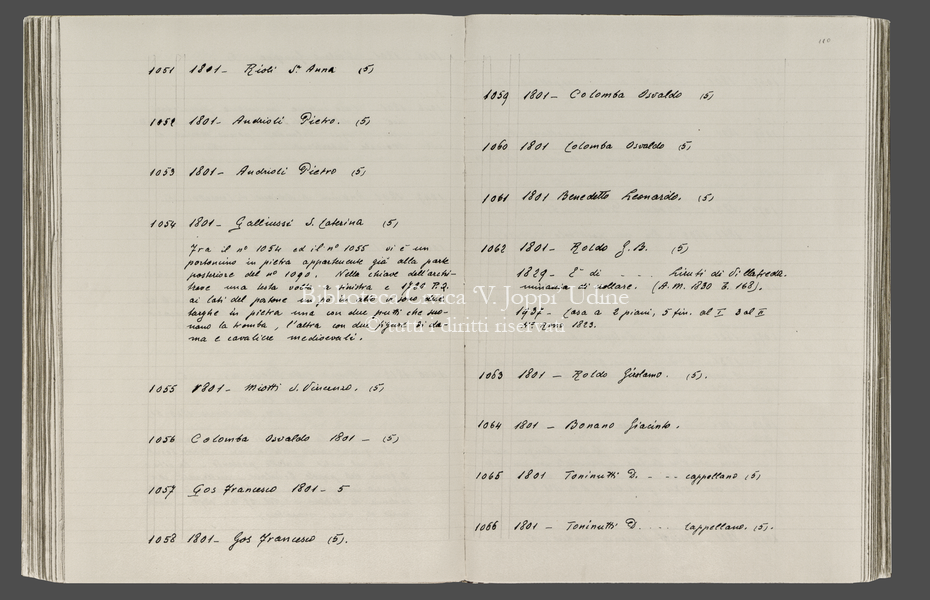 1051 1801 - Rioli S. Anna (5)
1052 1801 - Andrioli Pietro. (5)
1053 1801 - Andrioli Pietro (5)
1054 1801 - Galliussi S. Caterina (5)
Fra il nº 1054 ed il nº 1055 vi è un
portoncino in pietra appartenente già alla parte
posteriore del nº 1090. Nella chiave dell'archi-
trave una testa volta a sinistra e 1720 P.Q.
ai lati del portone
targhe in pietra una con due putti che suo-
nano la tromba, l'altra con due figure di da-
ma e cavaliere medioevali.
1055 1801 - Miotti S. Vincenzo. (5)
1056 Colomba Osvaldo 1801 - (5)
1057 Gos Francesco 1801 - 5
1058 1801 - Gos Francesco (5).
180
1059 1801 - Colomba Osvaldo (5)
1060 1801 Colomba Osvaldo (5)
1061 1801 Benedetto Leonardo. (5)
1062 1801 - Roldo G.B. (5)
1829 - E' di - . - . Linuti di Villafredda.
minaccia di crollare. (A.M. 1830 F. 168).
1937 - Casa a 2 piani, 5 fin. al I 3 al II
1823.
1063 1801 - Roldo Girolamo. (5).
1064 1801 - Bonano Giacinto.
1065 1801 Toninutti D. - - - cappellano (5)
1066 1801 - Toninutti D. . . . cappellano. (5).
Biblioteca Civica "V. Joppi" Udine
© tutti i diritti riservati